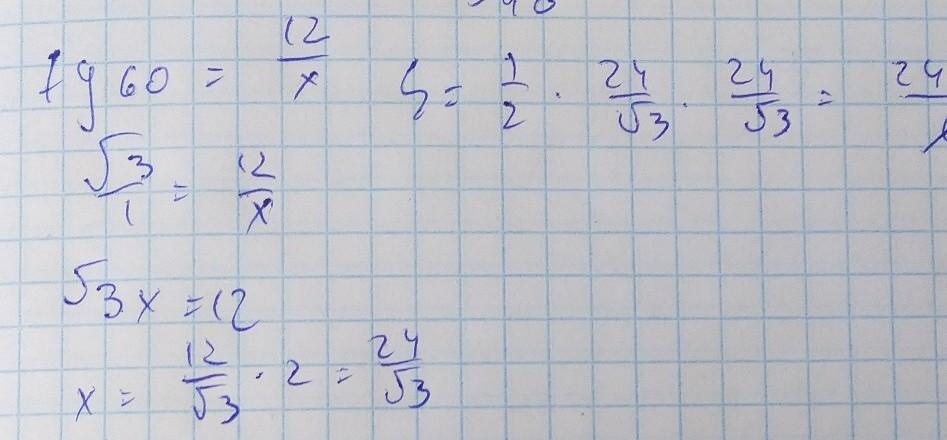 tg 60 = 12/x
S = 1/2 · 24/√3 · 24/√3 = 24/
√3/1 = 12/x
√3 x = 12
x = 12/√3 · 2 = 24/√3